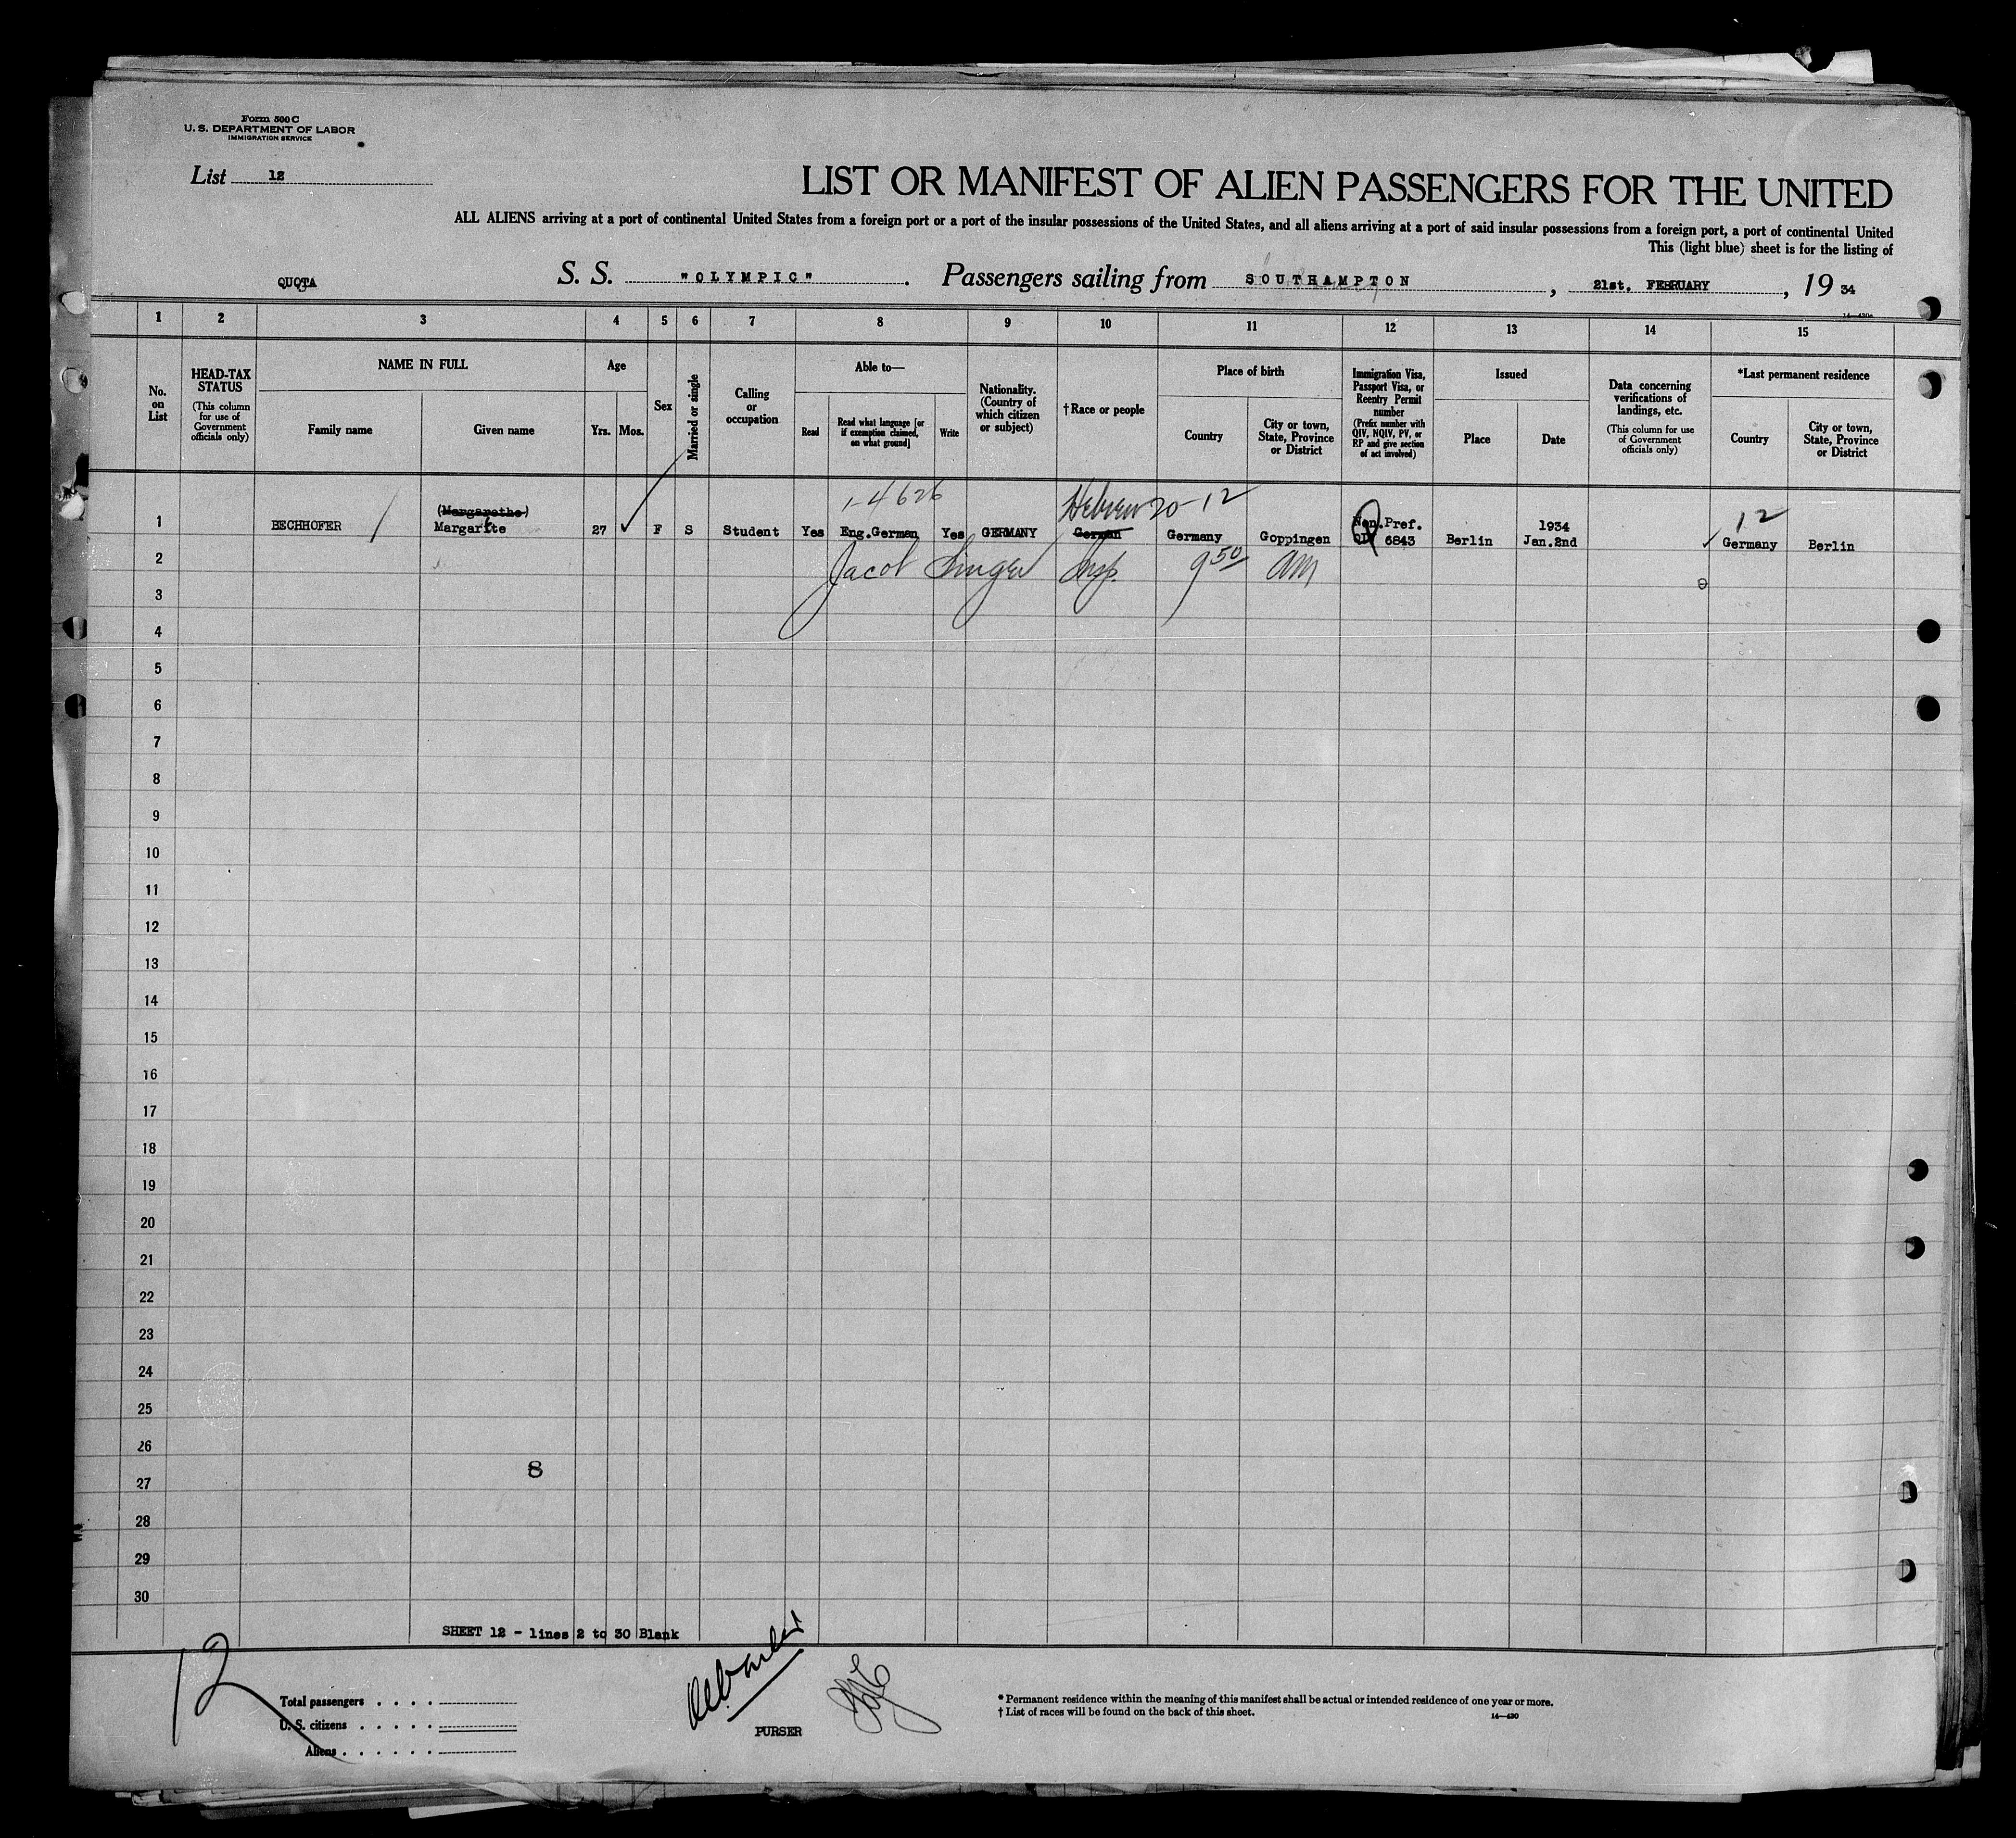 Form 500 C
U. S. DEPARTMENT OF LABOR
IMMIGRATION SERVICE
List 12
LIST OR MANIFEST OF ALIEN PASSENGERS FOR THE UNITED
ALL ALIENS arriving at a port of continental United States from a foreign port or a port of the insular possessions of the United States, and all aliens arriving at a port of said insular possessions from a foreign port, a port of continental United
This (light blue) sheet is for the listing of
QUOTA S. S. "OLYMPIC" . Passengers sailing from SOUTHAMPTON , 21st. FEBRUARY , 19 34
1 2 3 4 5 6 7 8 9 10 11 12 13 14 15
No. on List
HEAD-TAX STATUS
(This column for use of Government officials only)
NAME IN FULL
Family name Given name
Age
Yrs. Mos.
Sex
Married or single
Calling or occupation
Able to—
Read
Read what language [or if exemption claimed, on what ground]
Write
Nationality. (Country of which citizen or subject)
†Race or people
Place of birth
Country
City or town, State, Province or District
Immigration Visa, Passport Visa, or Reentry Permit number
(Prefix number with QIV, NQIV, PV, or RP and give section of act involved)
Issued
Place Date
Data concerning verifications of landings, etc.
(This column for use of Government officials only)
*Last permanent residence
Country
City or town, State, Province or District
1-4626 Hebrew 20-12 12
(Margarethe) Non.Pref. 1934
1 BECHHOFER Margarete 27 F S Student Yes Eng.German Yes GERMANY German Germany Goppingen QIV 6843 Berlin Jan.2nd Germany Berlin
2 Jacob Singer Insp. 9 50 AM
3
4
5
6
7
8
9
10
11
12
13
14
15
16
17
18
19
20
21
22
23
24
25
26
8
27
28
29
30
SHEET 12 - lines 2 to 30 Blank
12
Total passengers . . . .
U. S. citizens . . . . .
Aliens . . . . . .
PURSER
* Permanent residence within the meaning of this manifest shall be actual or intended residence of one year or more.
† List of races will be found on the back of this sheet.
14—430